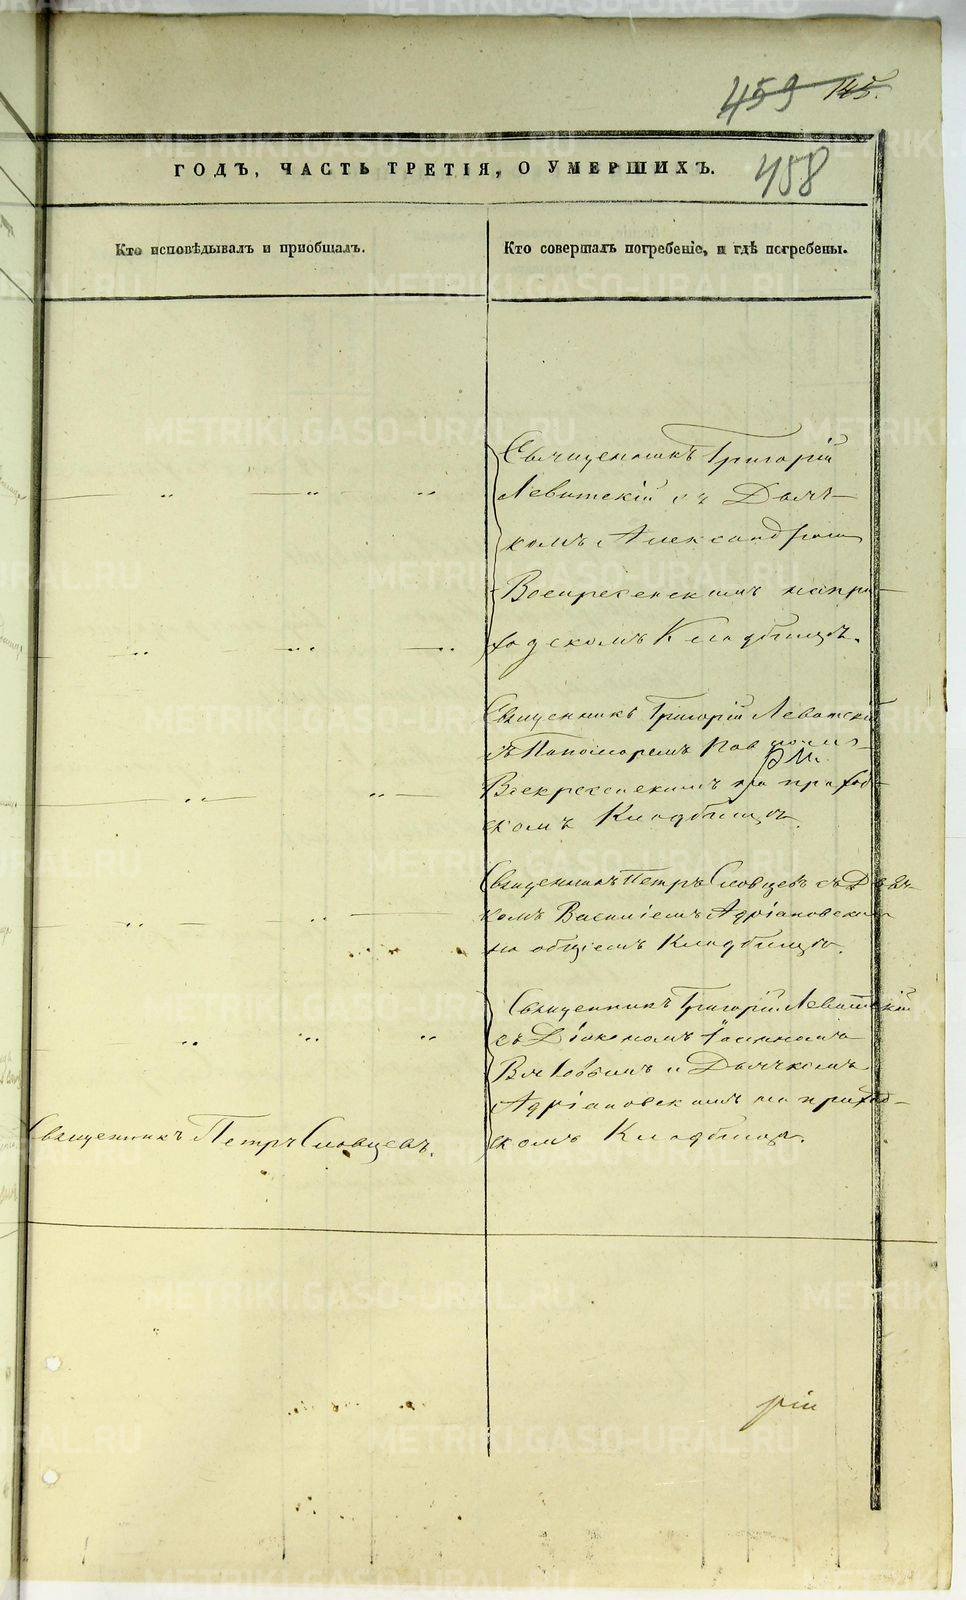 459 145.
ГОДЪ, ЧАСТЬ ТРЕТІЯ, О УМЕРШИХЪ.
458
Кто исповѣдывалъ и приобщалъ.
Кто совершалъ погребеніе, и гдѣ погребены.
Священникъ Григорій
Левитскій съ Дьяч-
комъ Александромъ
Воскресенскимъ на при-
ходскомъ Кладбищѣ.
Священникъ Григорій Левитскій
съ Пономаремъ
Воскресенскимъ на приход-
скомъ Кладбищѣ.
Священникъ Петръ Словцевъ съ Дьяч-
комъ Василіемъ Адріановскимъ
на общемъ Кладбищѣ.
Священникъ Григорій Левитскій
съ Діакономъ Іоанномъ
и Дьячкомъ
Адріановскимъ на приход-
скомъ Кладбищѣ.
Священникъ Петръ Словцевъ.
рій
METRIKI.GASO-URAL.RU